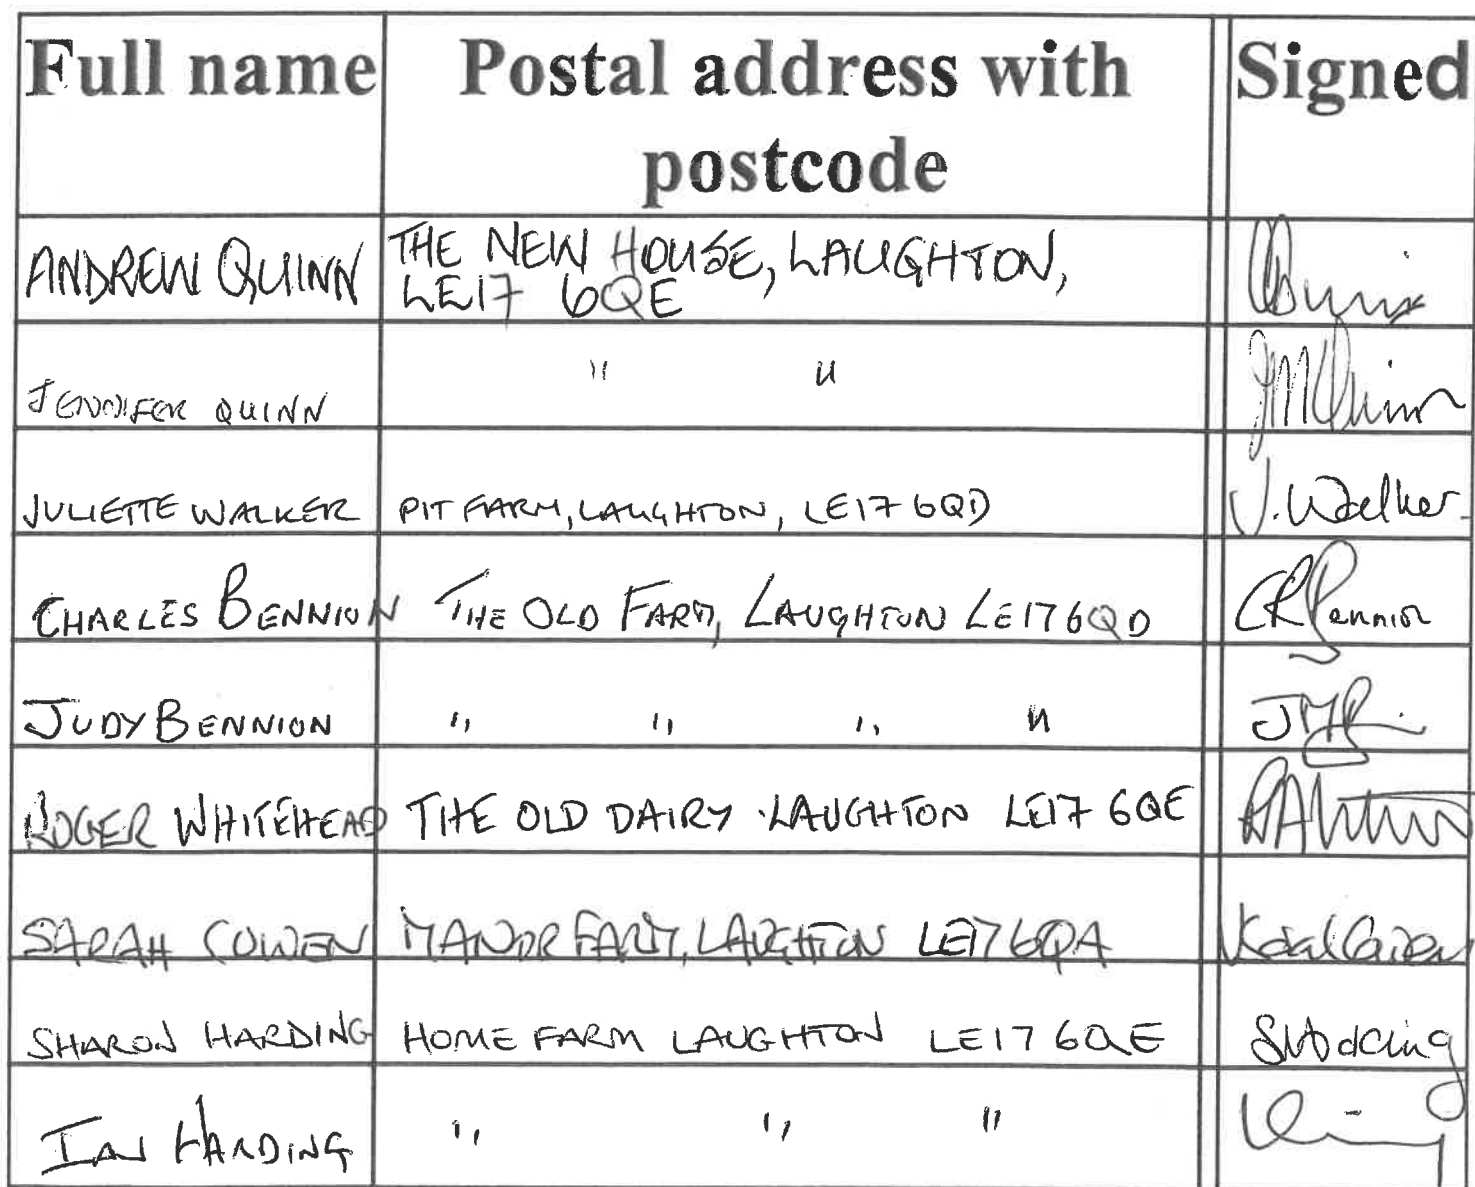 Full name Postal address with postcode Signed
ANDREW QUINN THE NEW HOUSE, LAUGHTON,
LE17 6QE
JENNIFER QUINN " "
JULIETTE WALKER PIT FARM, LAUGHTON, LE17 6QD J. Walker.
CHARLES BENNION THE OLD FARM, LAUGHTON LE17 6QD CRBennion
JUDY BENNION " " " "
ROGER WHITEHEAD THE OLD DAIRY LAUGHTON LE17 6QE
SARAH COWEN MANOR FARM, LAUGHTON LE17 6QA
SHARON HARDING HOME FARM LAUGHTON LE17 6QE
IAN HARDING " " "